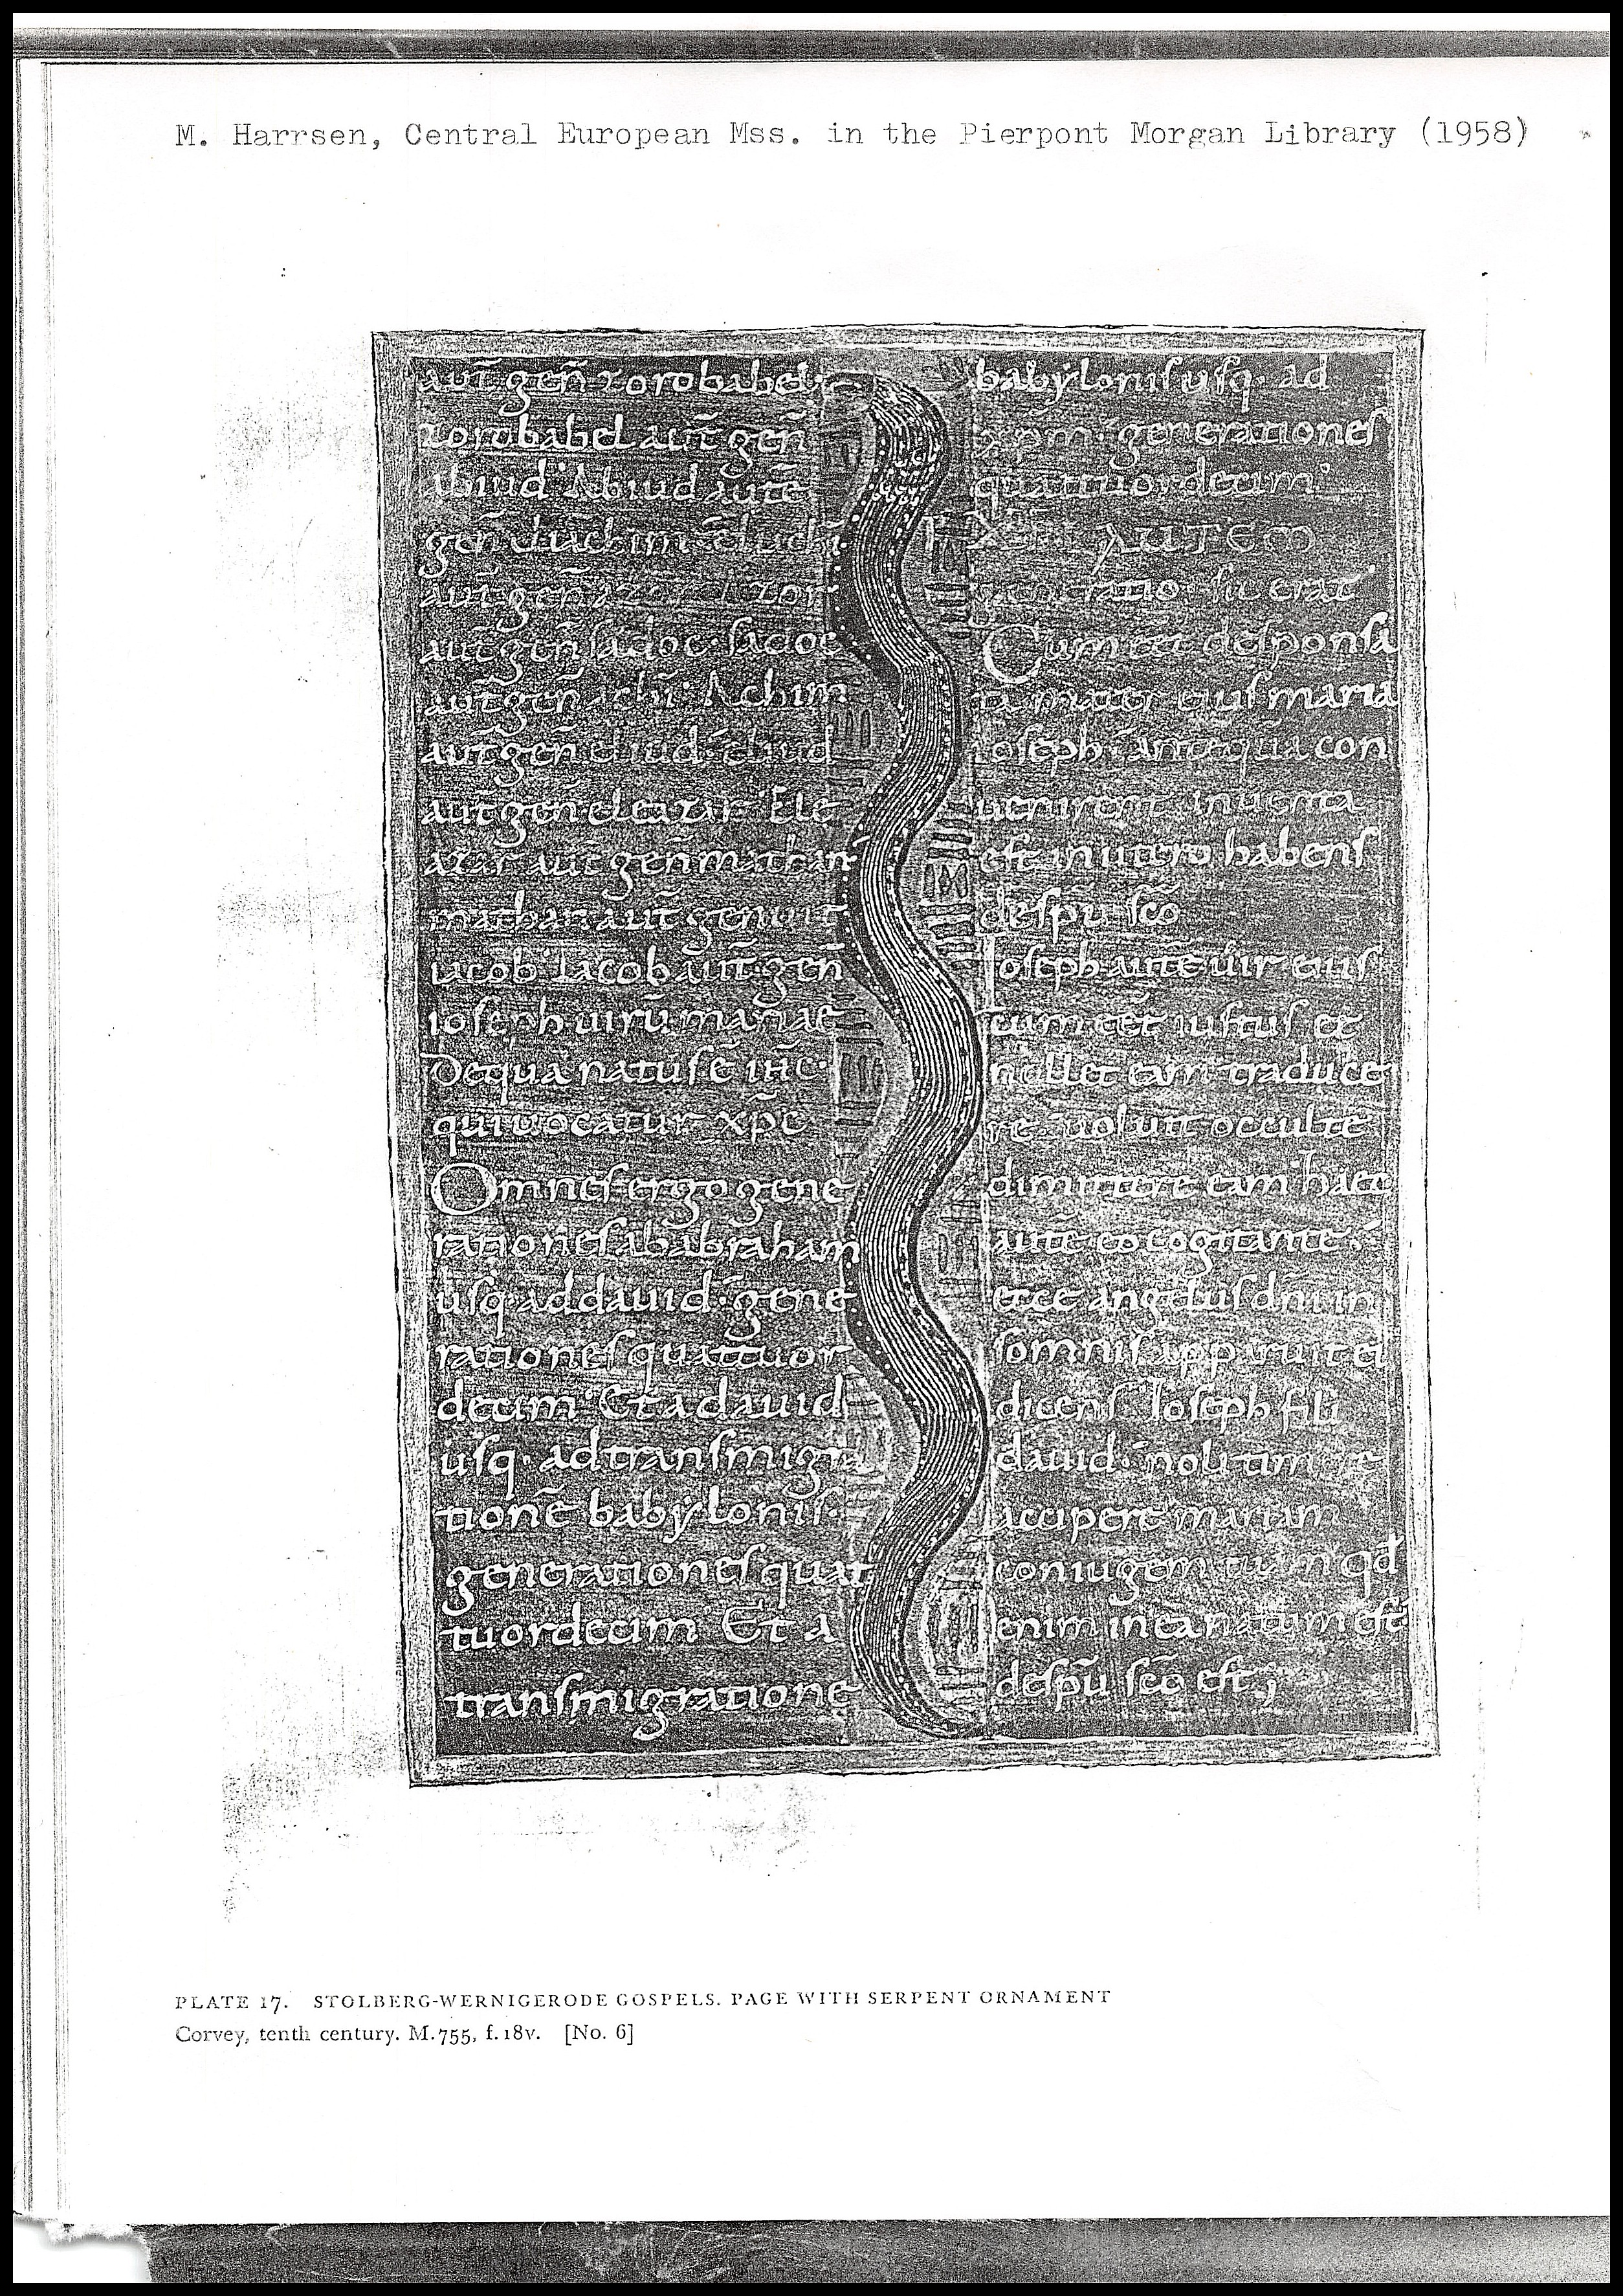 M. Harrsen, Central European Mss. in the Pierpont Morgan Library (1958)
aut̄ gen̄ zorobabel·
zorobabel aut̄ gen̄
abiud· Abiud autē
gen̄ eliachim· eliachi
aut̄ gen̄ azor· Azor
aut̄ gen̄ sadoc· sadoc
aut̄ gen̄ achī· Achim
aut̄ gen̄ eliud· eliud
aut̄ gen̄ eleazar· Ele
azar aut̄ gen̄ mathan·
mathan aut̄ genuit
iacob· Iacob aut̄ gen̄
ioseph uirū mariae
de qua natus ē ih̄c·
qui uocatur xp̄c
Omnes ergo gene
rationes ab abraham
usq· ad dauid· gene
rationes quattuor
decim· Et a dauid
usq· ad transmigra
tionē babylonis·
generationes quat
tuordecim· Et a
transmigratione
babylonis usq· ad
xp̄m· generationes
quattuordecim·
XPI AUTEM
generatio sic erat·
Cum eēt desponsa
ta mater eius maria
ioseph· antequā con
uenirent inuenta
est in utero habens
de sp̄u sc̄o
Ioseph autē uir eius
cum eēt iustus et
nollet eam traduce
re uoluit occulte
dimittere eam· haec
autē eo cogitante·
ecce angelus dn̄i in
somnis apparuit ei
dicens Ioseph fili
dauid· noli timere
accipere mariam
coniugem tuam qd̄
enim in ea natum est
de sp̄u sc̄o est;
PLATE 17. STOLBERG-WERNIGERODE GOSPELS. PAGE WITH SERPENT ORNAMENT
Corvey, tenth century. M.755, f.18v. [No. 6]